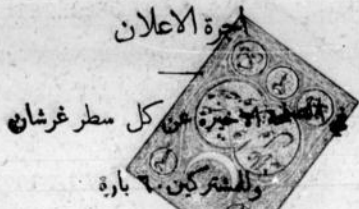 اجرة الاعلان
في الصحيفة الاخيرة عن كل سطر غرشان
وللمشتركين ٦٠ بارة